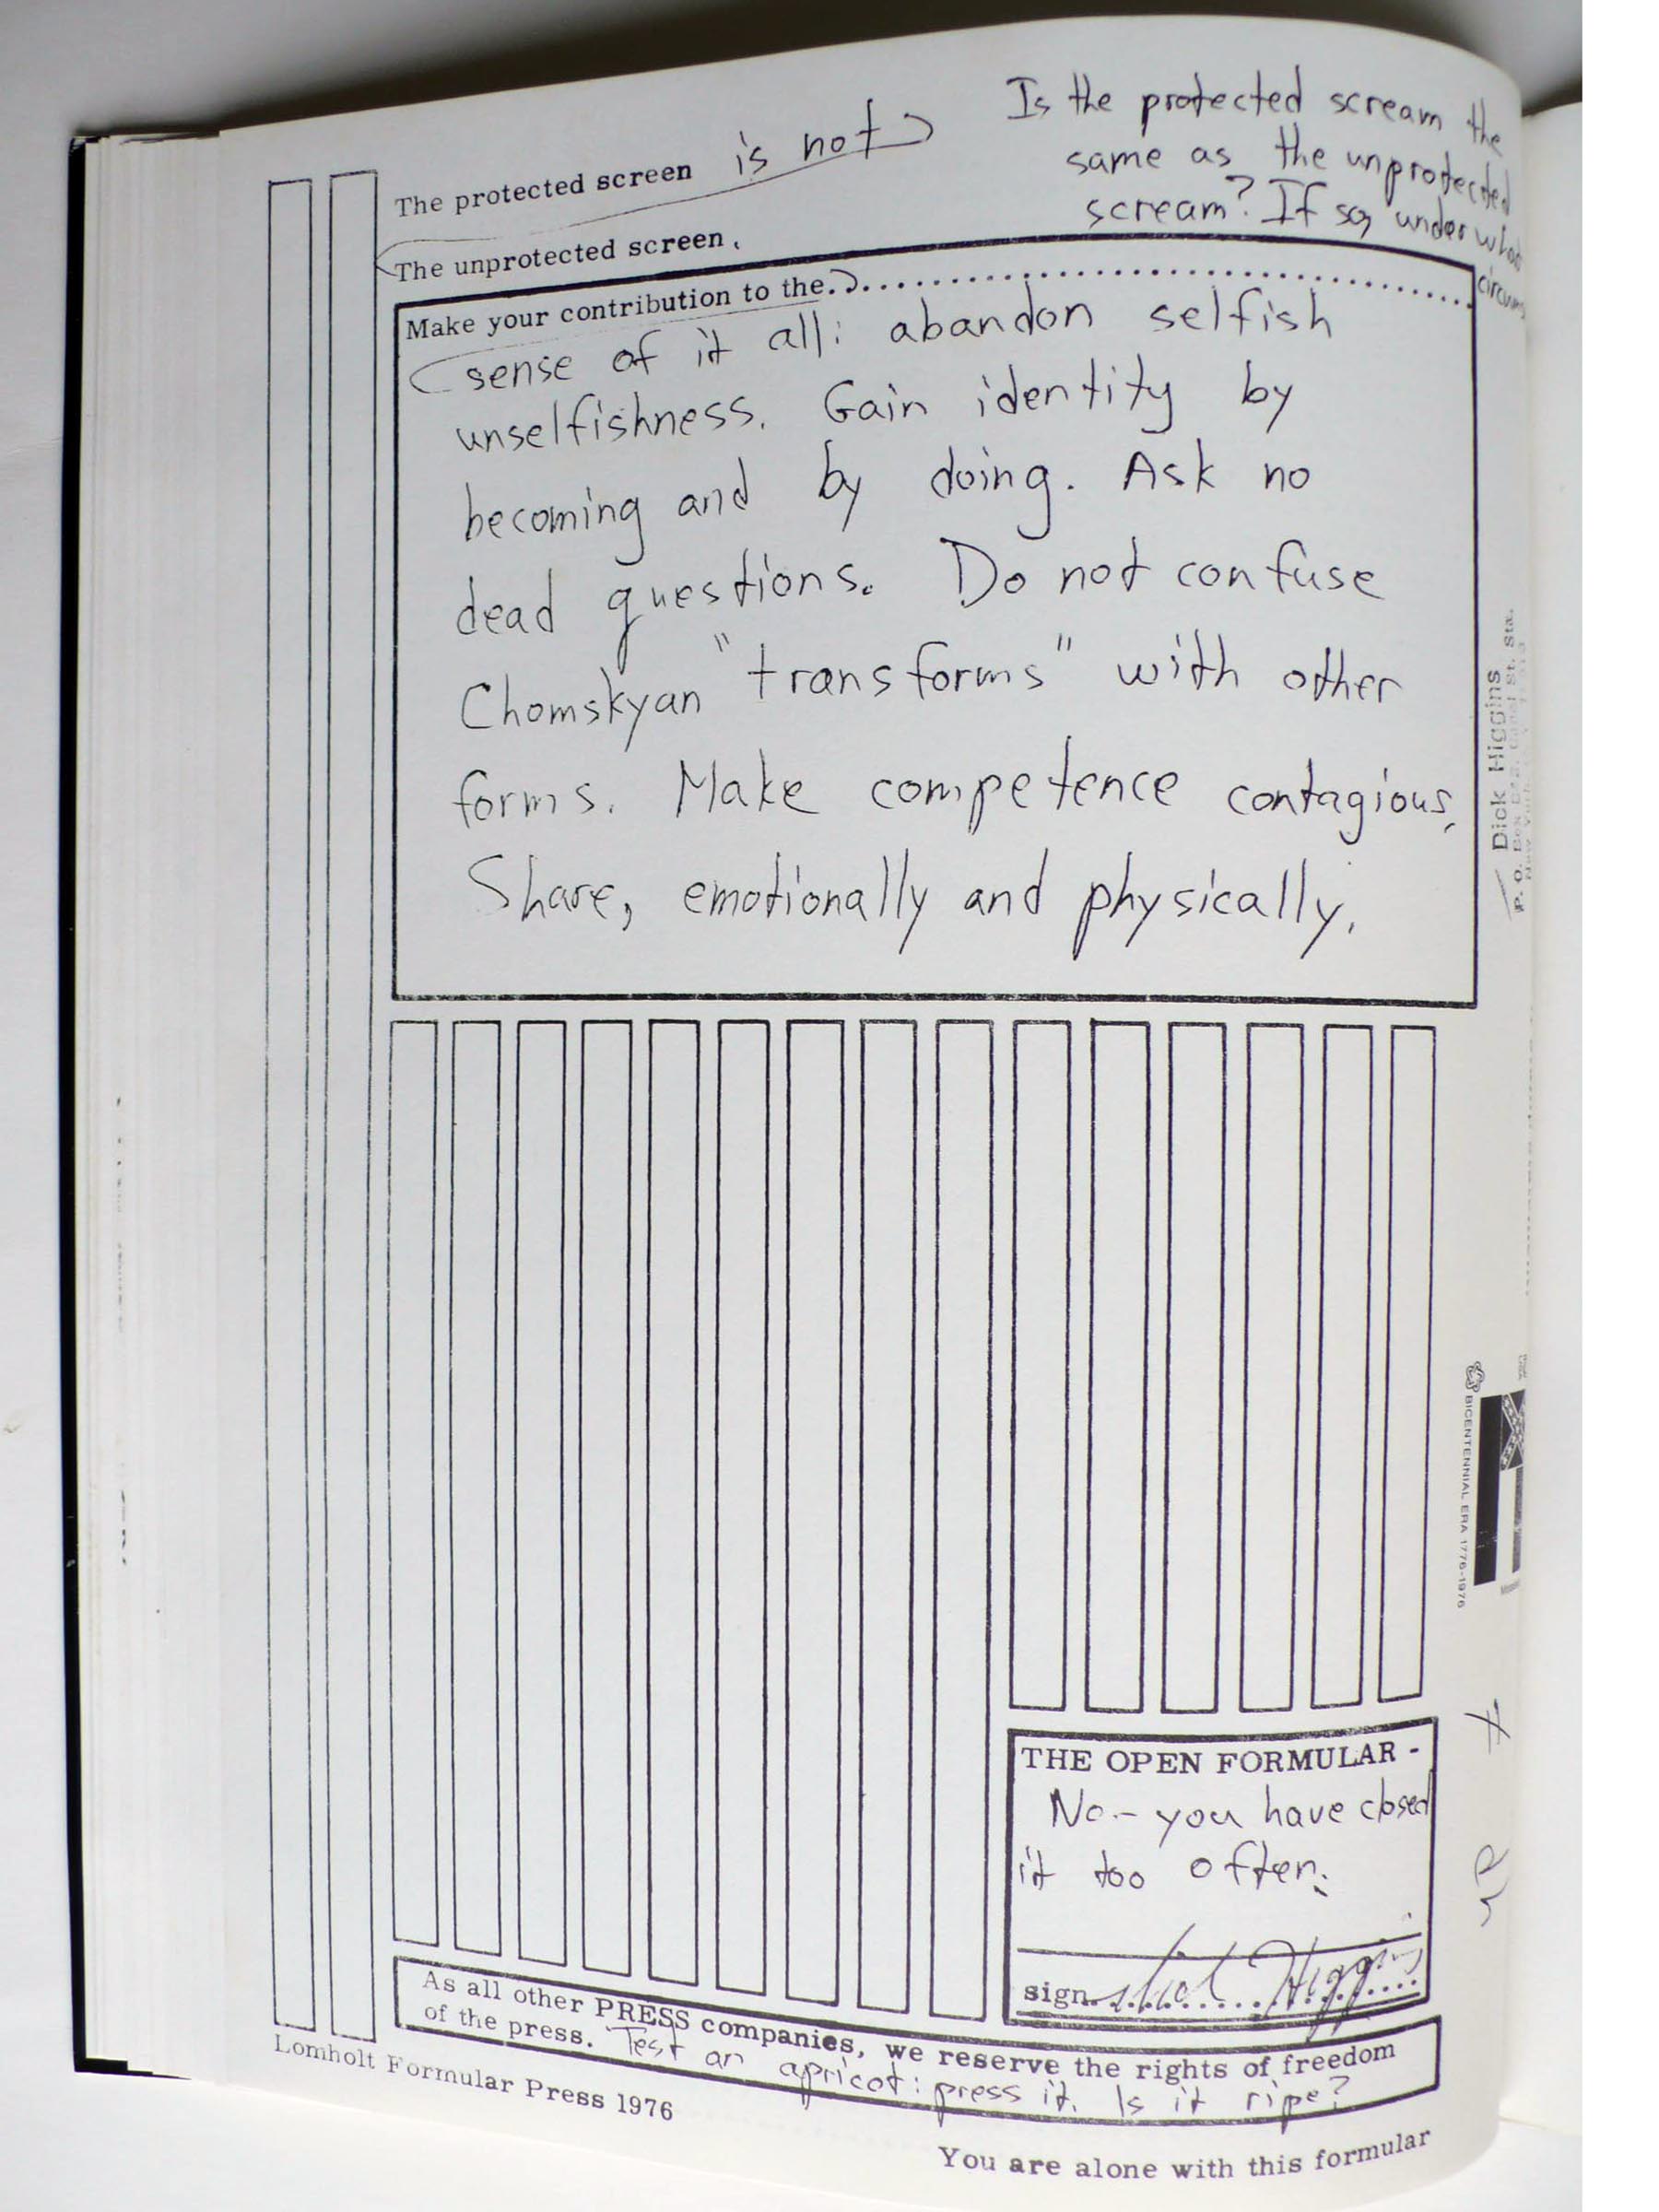 The protected screen is not
Is the protected scream the
same as the unprotected
scream? If so, under what
The unprotected screen.
Make your contribution to the...
sense of it all: abandon selfish
unselfishness. Gain identity by
becoming and by doing. Ask no
dead questions. Do not confuse
Chomskyan "transforms" with other
forms. Make competence contagious.
Share, emotionally and physically.
Dick Higgins
P. O. Box
BICENTENNIAL ERA 1776-1976
THE OPEN FORMULAR -
No - you have closed
it too often.
sign. Dick Higgins
As all other PRESS companies, we reserve the rights of freedom
of the press. Test an apricot: press it. Is it ripe?
Lomholt Formular Press 1976
You are alone with this formular